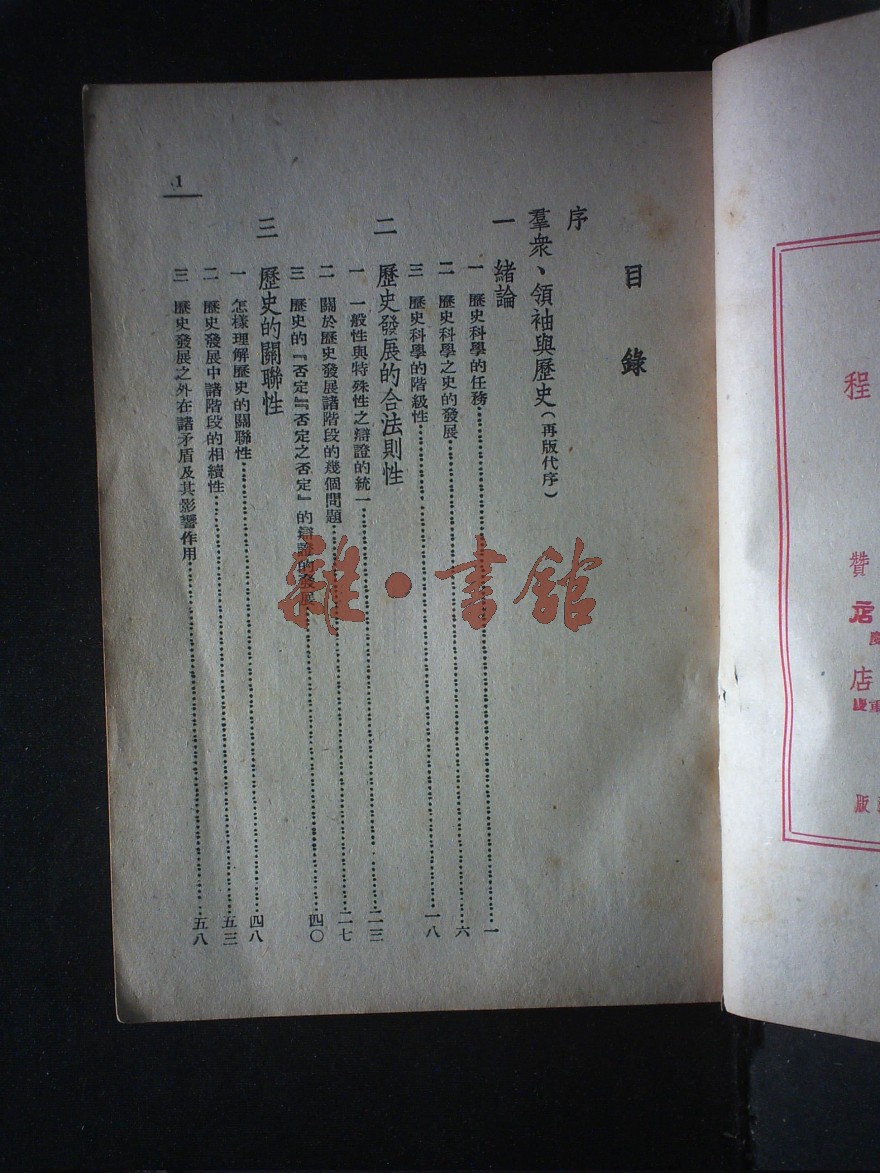 程
贊
店
店
重慶
版
目錄
序
羣衆、領袖與歷史(再版代序)
一 緒論
一 歷史科學的任務 一
二 歷史科學之史的發展 六
三 歷史科學的階級性 一八
二 歷史發展的合法則性
一 一般性與特殊性之辯證的統一 二三
二 關於歷史發展諸階段的幾個問題 二七
三 歷史的『否定』『否定之否定』的辯證的發展 四〇
三 歷史的關聯性
一 怎樣理解歷史的關聯性 四八
二 歷史發展中諸階段的相續性 五三
三 歷史發展之外在諸矛盾及其影響作用 五八
1
雜·書館